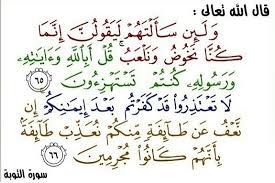 قال الله تعالى :
وَلَئِن سَأَلْتَهُمْ لَيَقُولُنَّ إِنَّمَا
كُنَّا نَخُوضُ وَنَلْعَبُ ۚ قُلْ أَبِاللَّهِ وَءَايَٰتِهِۦ
وَرَسُولِهِۦ كُنتُمْ تَسْتَهْزِءُونَ ٦٥
لَا تَعْتَذِرُوا۟ قَدْ كَفَرْتُم بَعْدَ إِيمَٰنِكُمْ ۚ إِن
نَّعْفُ عَن طَآئِفَةٍ مِّنكُمْ نُعَذِّبْ طَآئِفَةًۢ
بِأَنَّهُمْ كَانُوا۟ مُجْرِمِينَ ٦٦
سورة التوبة